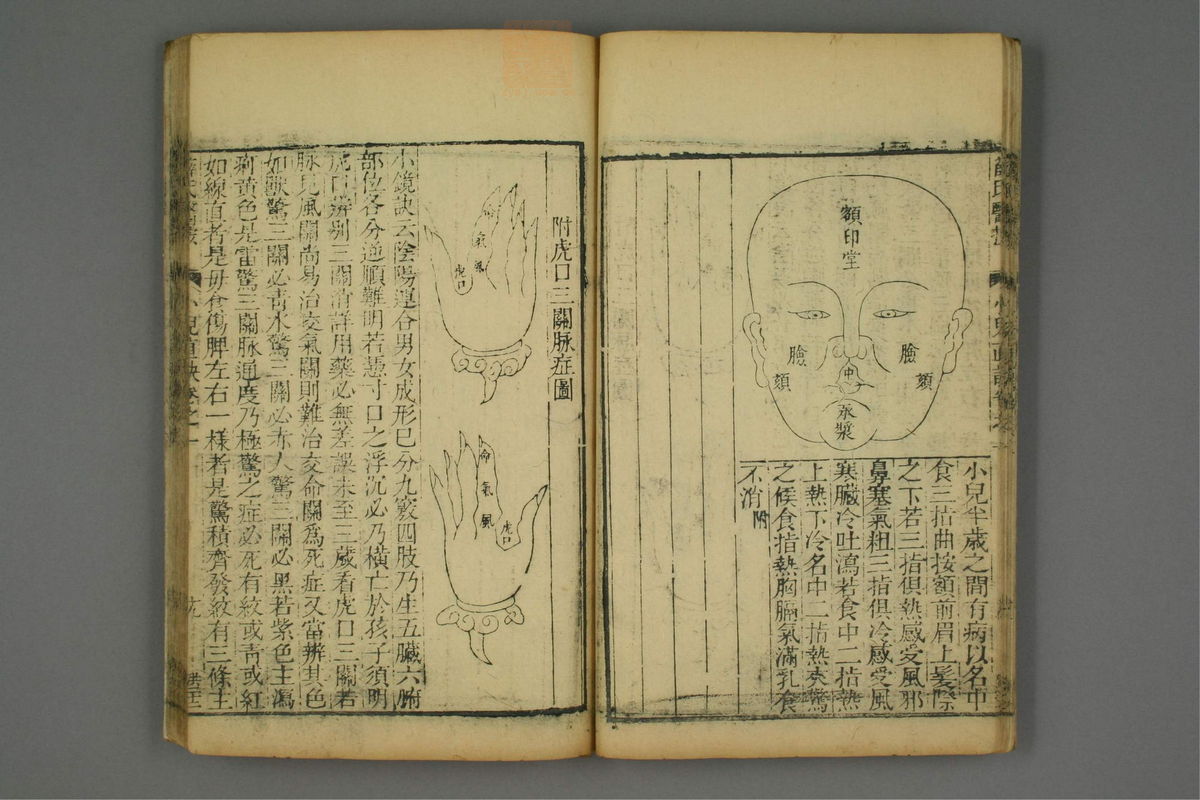 額印堂
臉
臉
頦
頦
承漿
小兒半歲之間有病以名中
食三指曲按額前眉上髮際
之下若三指俱熱感受風邪
鼻塞氣粗三指俱冷感受風
寒臟冷吐瀉若食中二指熱
上熱下冷名中二指熱夾驚
之候食指熱胸膈氣滿乳食
不消 附
附虎口三關脉症圖
命
氣
風
虎口
命
氣
風
虎口
小鏡訣云陰陽運合男女成形已分九竅四肢乃生五臟六腑
部位各分逆順難明若憑寸口之浮沉必乃橫亡於孩子須明
虎口辨别三關消詳用藥必無差誤未至三歲看虎口三關若
脉見風關尚易治交氣關則難治交命關爲死症又當辨其色
如獸驚三關必青水驚三關必赤人驚三關必黑若紫色主瀉
痢黃色是雷驚三關脉通度乃極驚之症必死有紋或青或紅
如線直者是母食傷脾左右一樣者是驚積齊發紋有三條主
薛氏醫案
小兒直訣卷之一